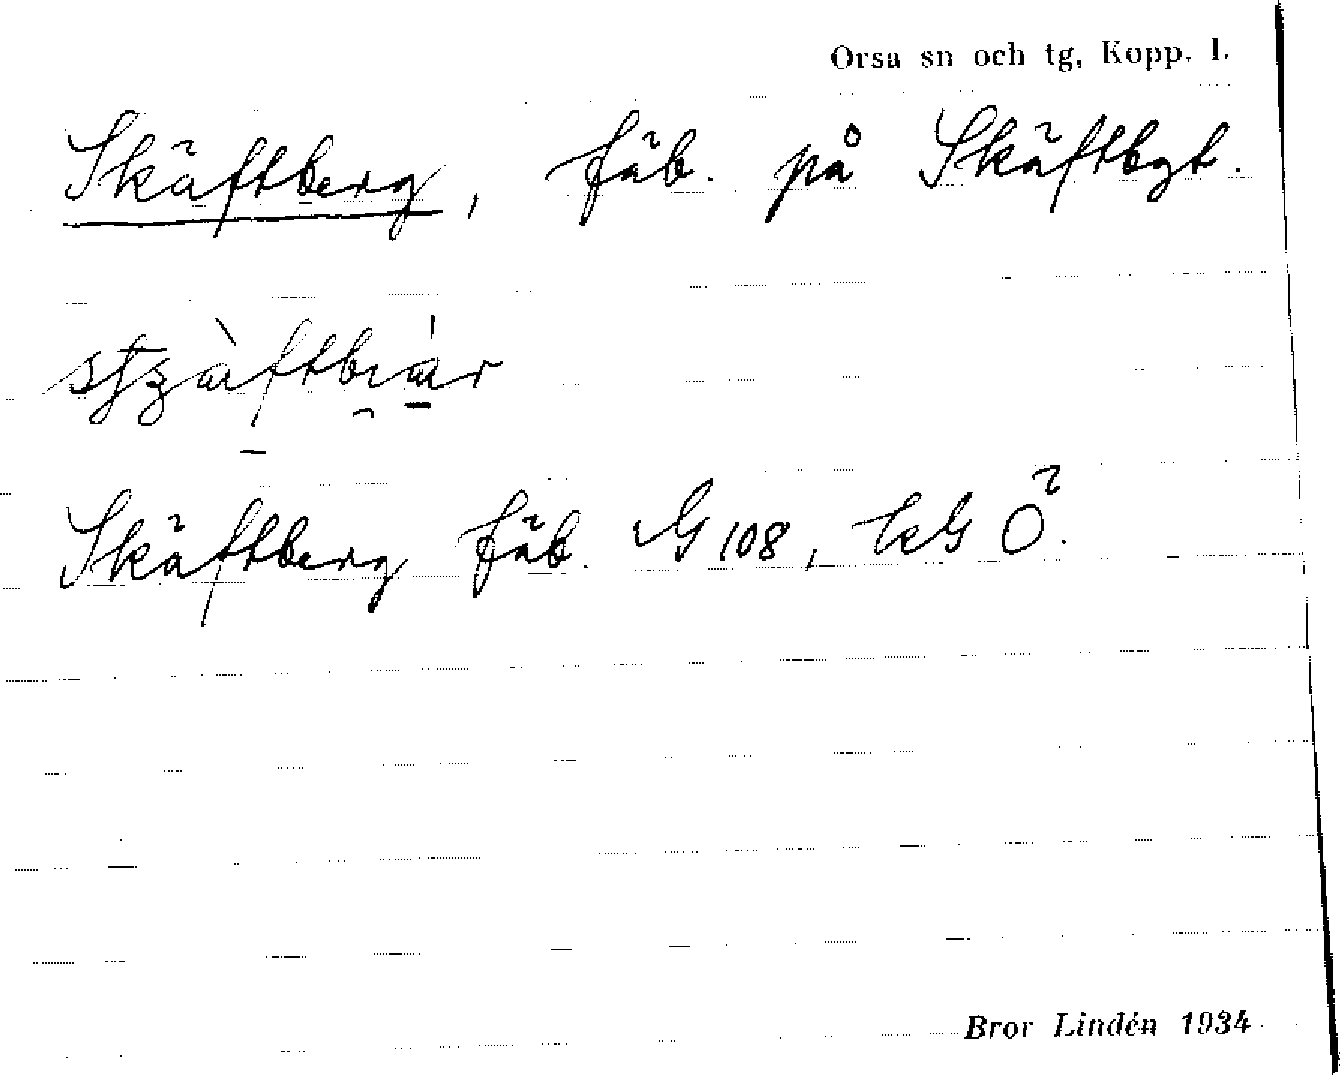 Orsa sn och tg, Kopp. l.
Skäftberg, fäb. på Skäftbgt.
Skäftberg fäb. G 108, kG Ö.
Bror Lindén 1934